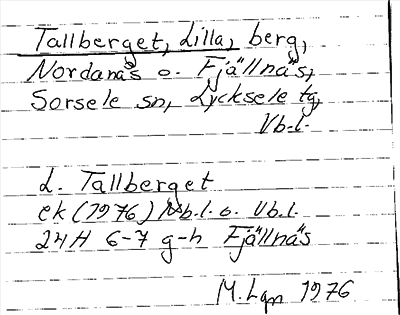 Tallberget, Lilla, berg,
Nordanås o. Fjällnäs,
Sorsele sn, Lycksele tg,
Vb.l.
L. Tallberget
ek (1976) Nb.l. o. Vb.l.
24H 6-7 g-h Fjällnäs
M. Lgn 1976